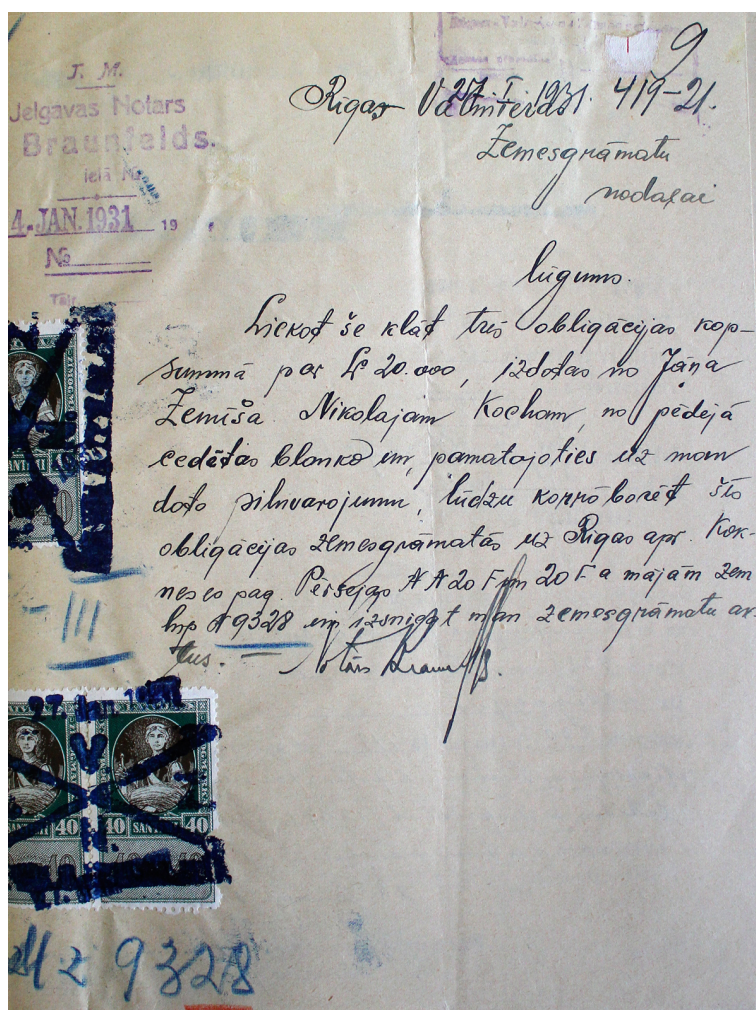 9
J. M.
Jelgavas Notars
Braunfelds.
ielā №
4. JAN. 1931 19
№
Tālr.
27. I. 1931. 419-21.
Rīgas-Valmieras
Zemesgrāmatu
nodaļai
lūgums.
Liekot še klāt trīs obligācijas kop-
summā par Ls 20.000, izdotas no Jāņa
Zemīša Nikolajam Kocham, no pēdējā
cedētas blanko un, pamatojoties uz man
doto pilnvarojumu, lūdzu korroborēt šīs
obligācijas zemesgrāmatās uz Rīgas apr. Kok-
neses pag. Pērsejas № № 20 F un 20 F a mājām zem
hip № 9328 un izsniegt man zemesgrāmatu ak-
tus. Notārs
III
SANTIMI
27. Jan. 1931
40 40 SANTIMI 40
9328